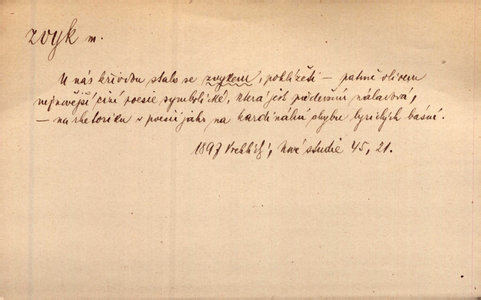 zvyk m.
U nás křivdou stalo se zvykem, pohlížeti — patrně vlivem
nejnovější cizí poesie symbolické, která jest především náladová,
— na rhetoriku v poesii jako na kardinální chybu lyrických básní.
1897 Vrchlický, Nové studie 45, 21.